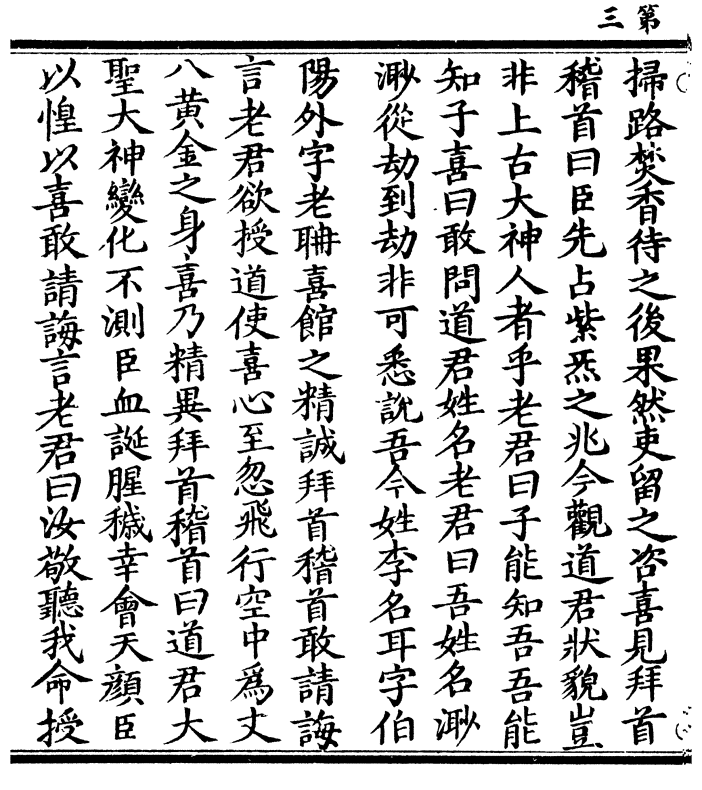 第三
掃路焚香待之後果然吏留之咨喜見拜首
稽首曰臣先占紫炁之兆今觀道君狀貌豈
非上古大神人者乎老君曰子能知吾吾能
知子喜曰敢問道君姓名老君曰吾姓名渺
渺從劫到劫非可悉說吾今姓李名耳字伯
陽外字老聃喜館之精誠拜首稽首敢請誨
言老君欲授道使喜心至忽飛行空中爲丈
八黄金之身喜乃精異拜首稽首曰道君大
聖大神變化不測臣血誕腥穢幸會天顔臣
以惶以喜敢請誨言老君曰汝敬聽我命授